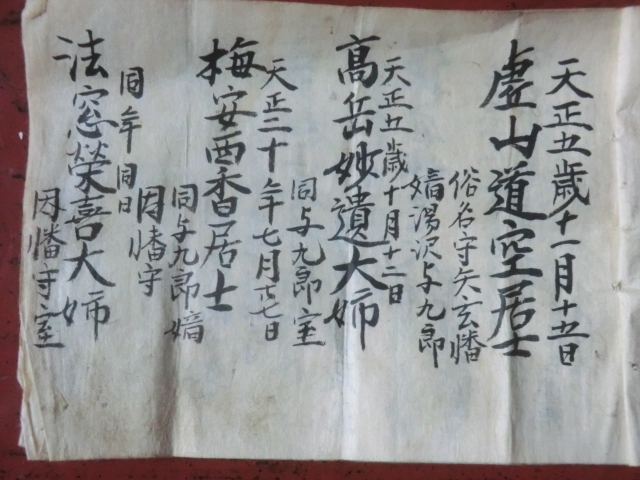 天正五歳十一月十五日
虚山道空居士
俗名守矢玄幡
嫡湯沢与九郎
天正五歳十月十二日
高岳妙遺大姉
同与九郎室
天正二十年七月廿七日
梅安西香居士
同与九郎嫡
因幡守
同年同日
法窓榮喜大姉
因幡守室